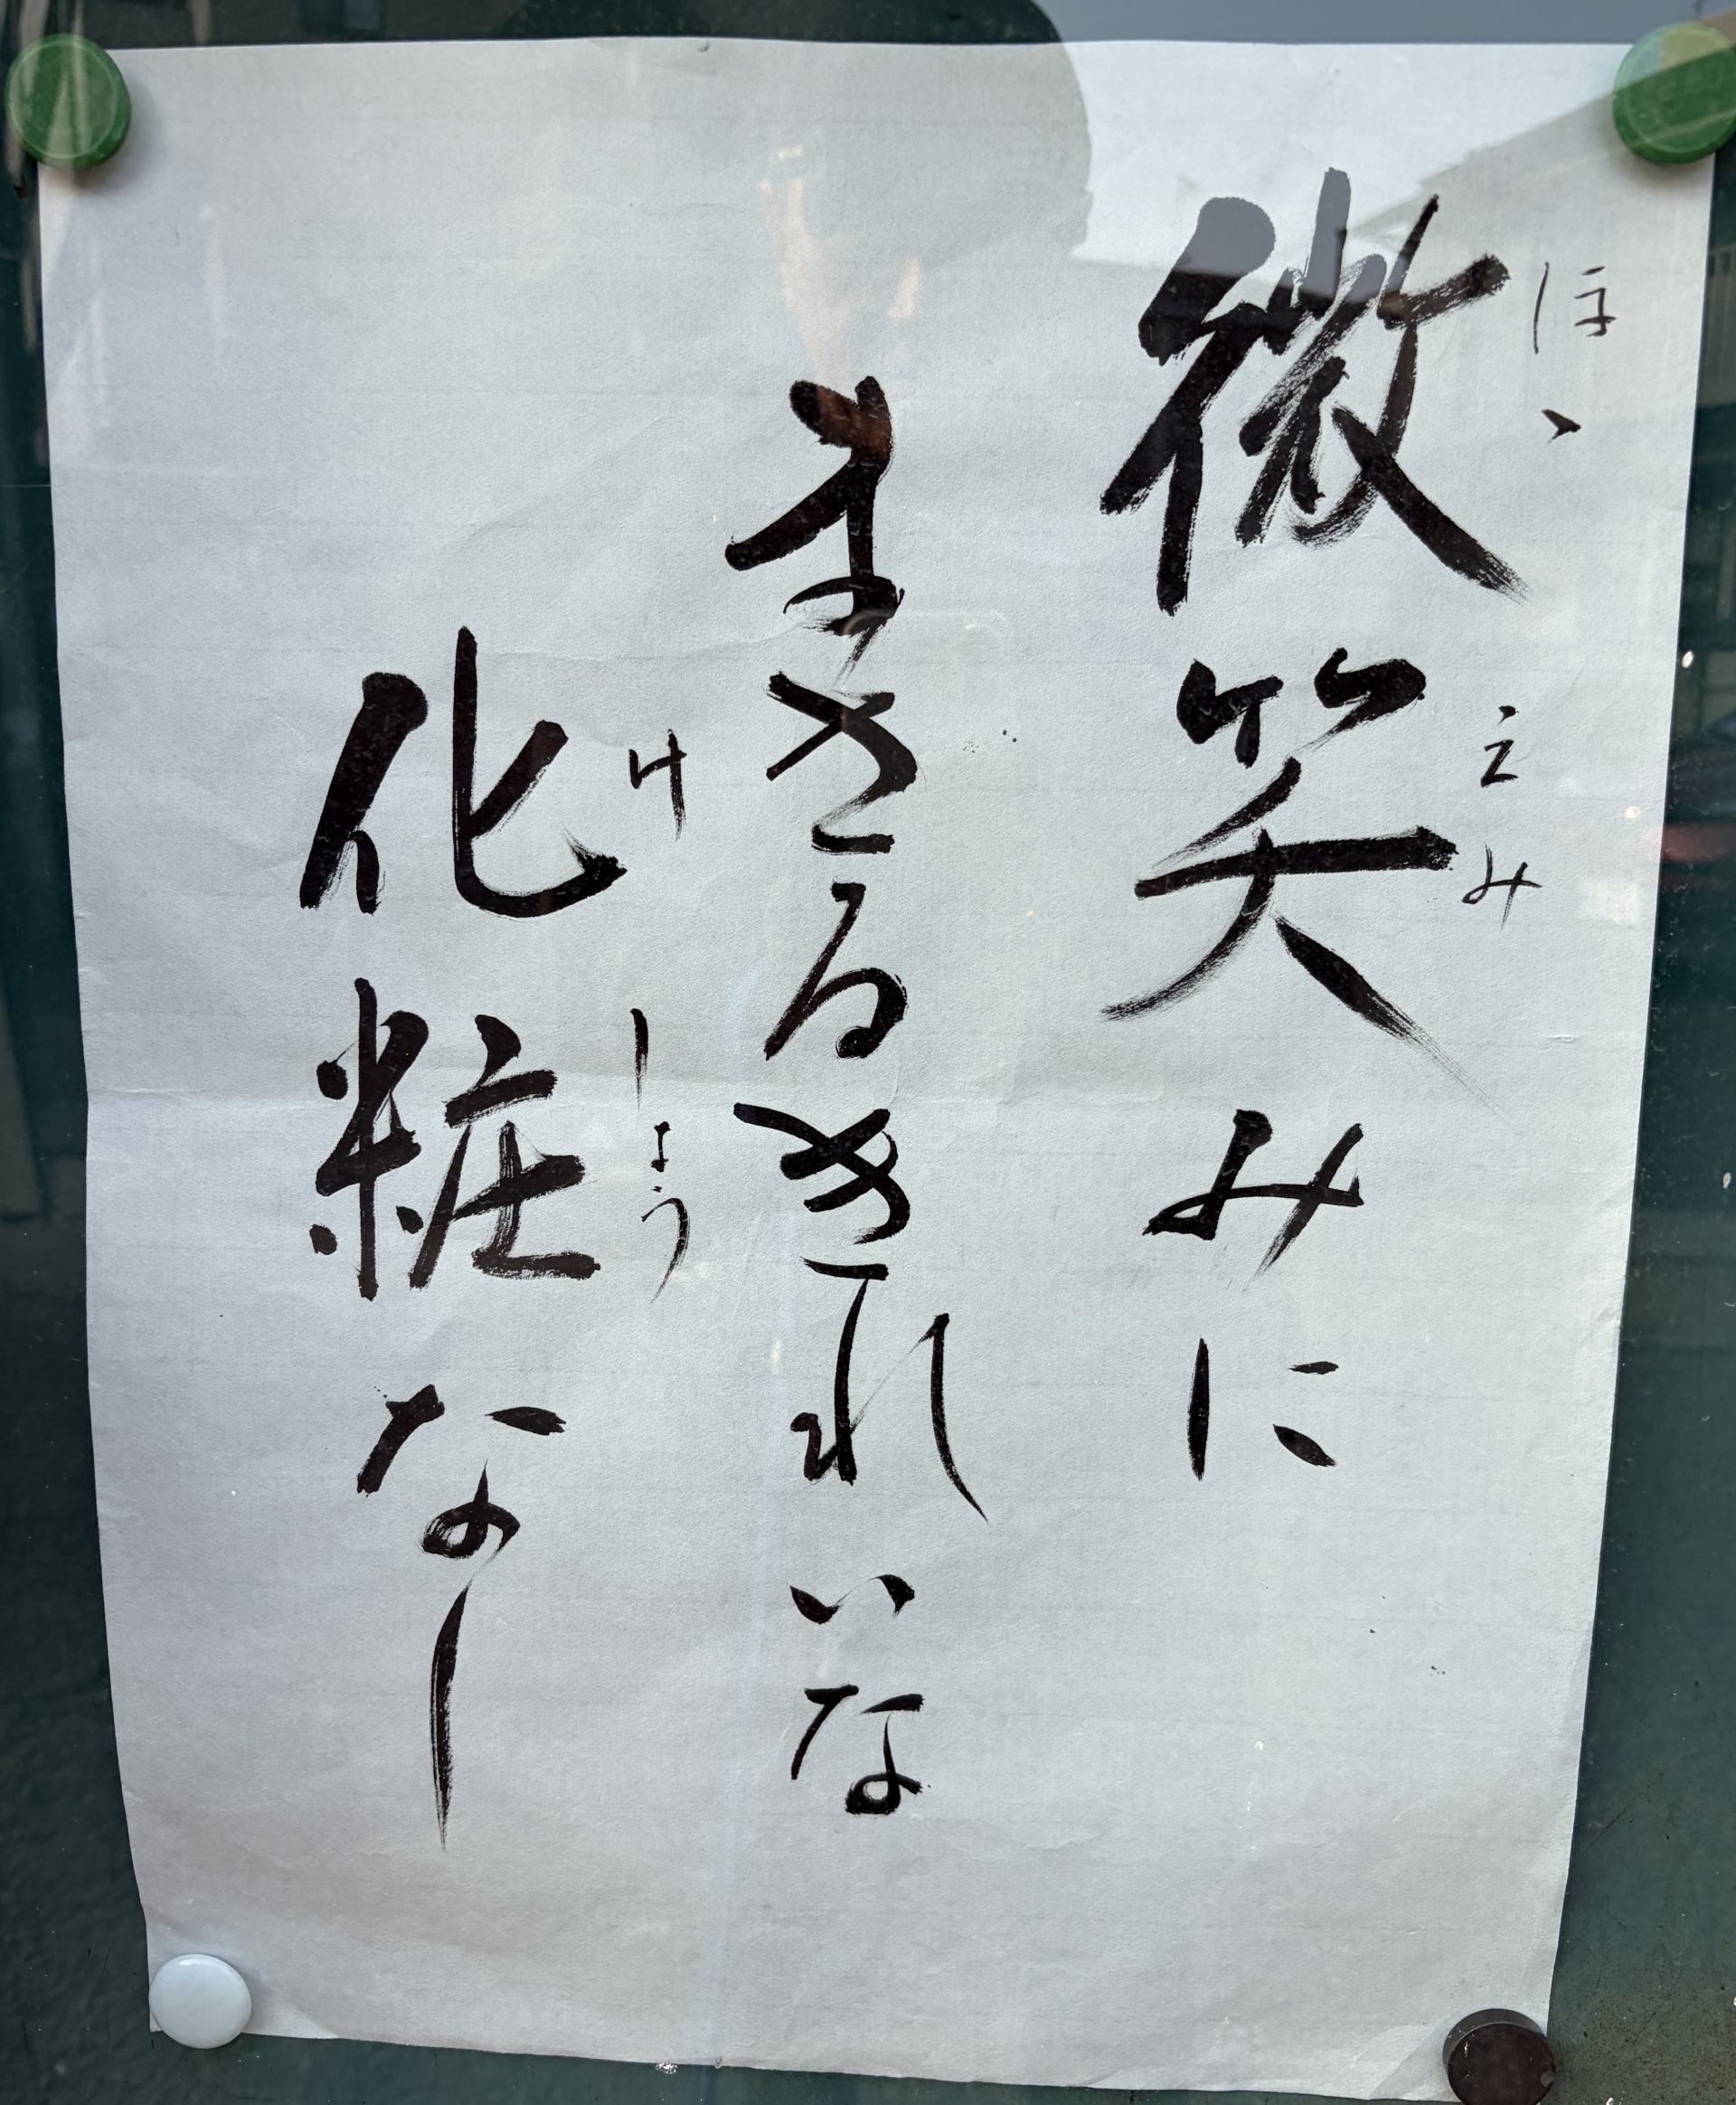 微笑みに
まさるきれいな
化粧なし
ほゝ
えみ
け
しょう